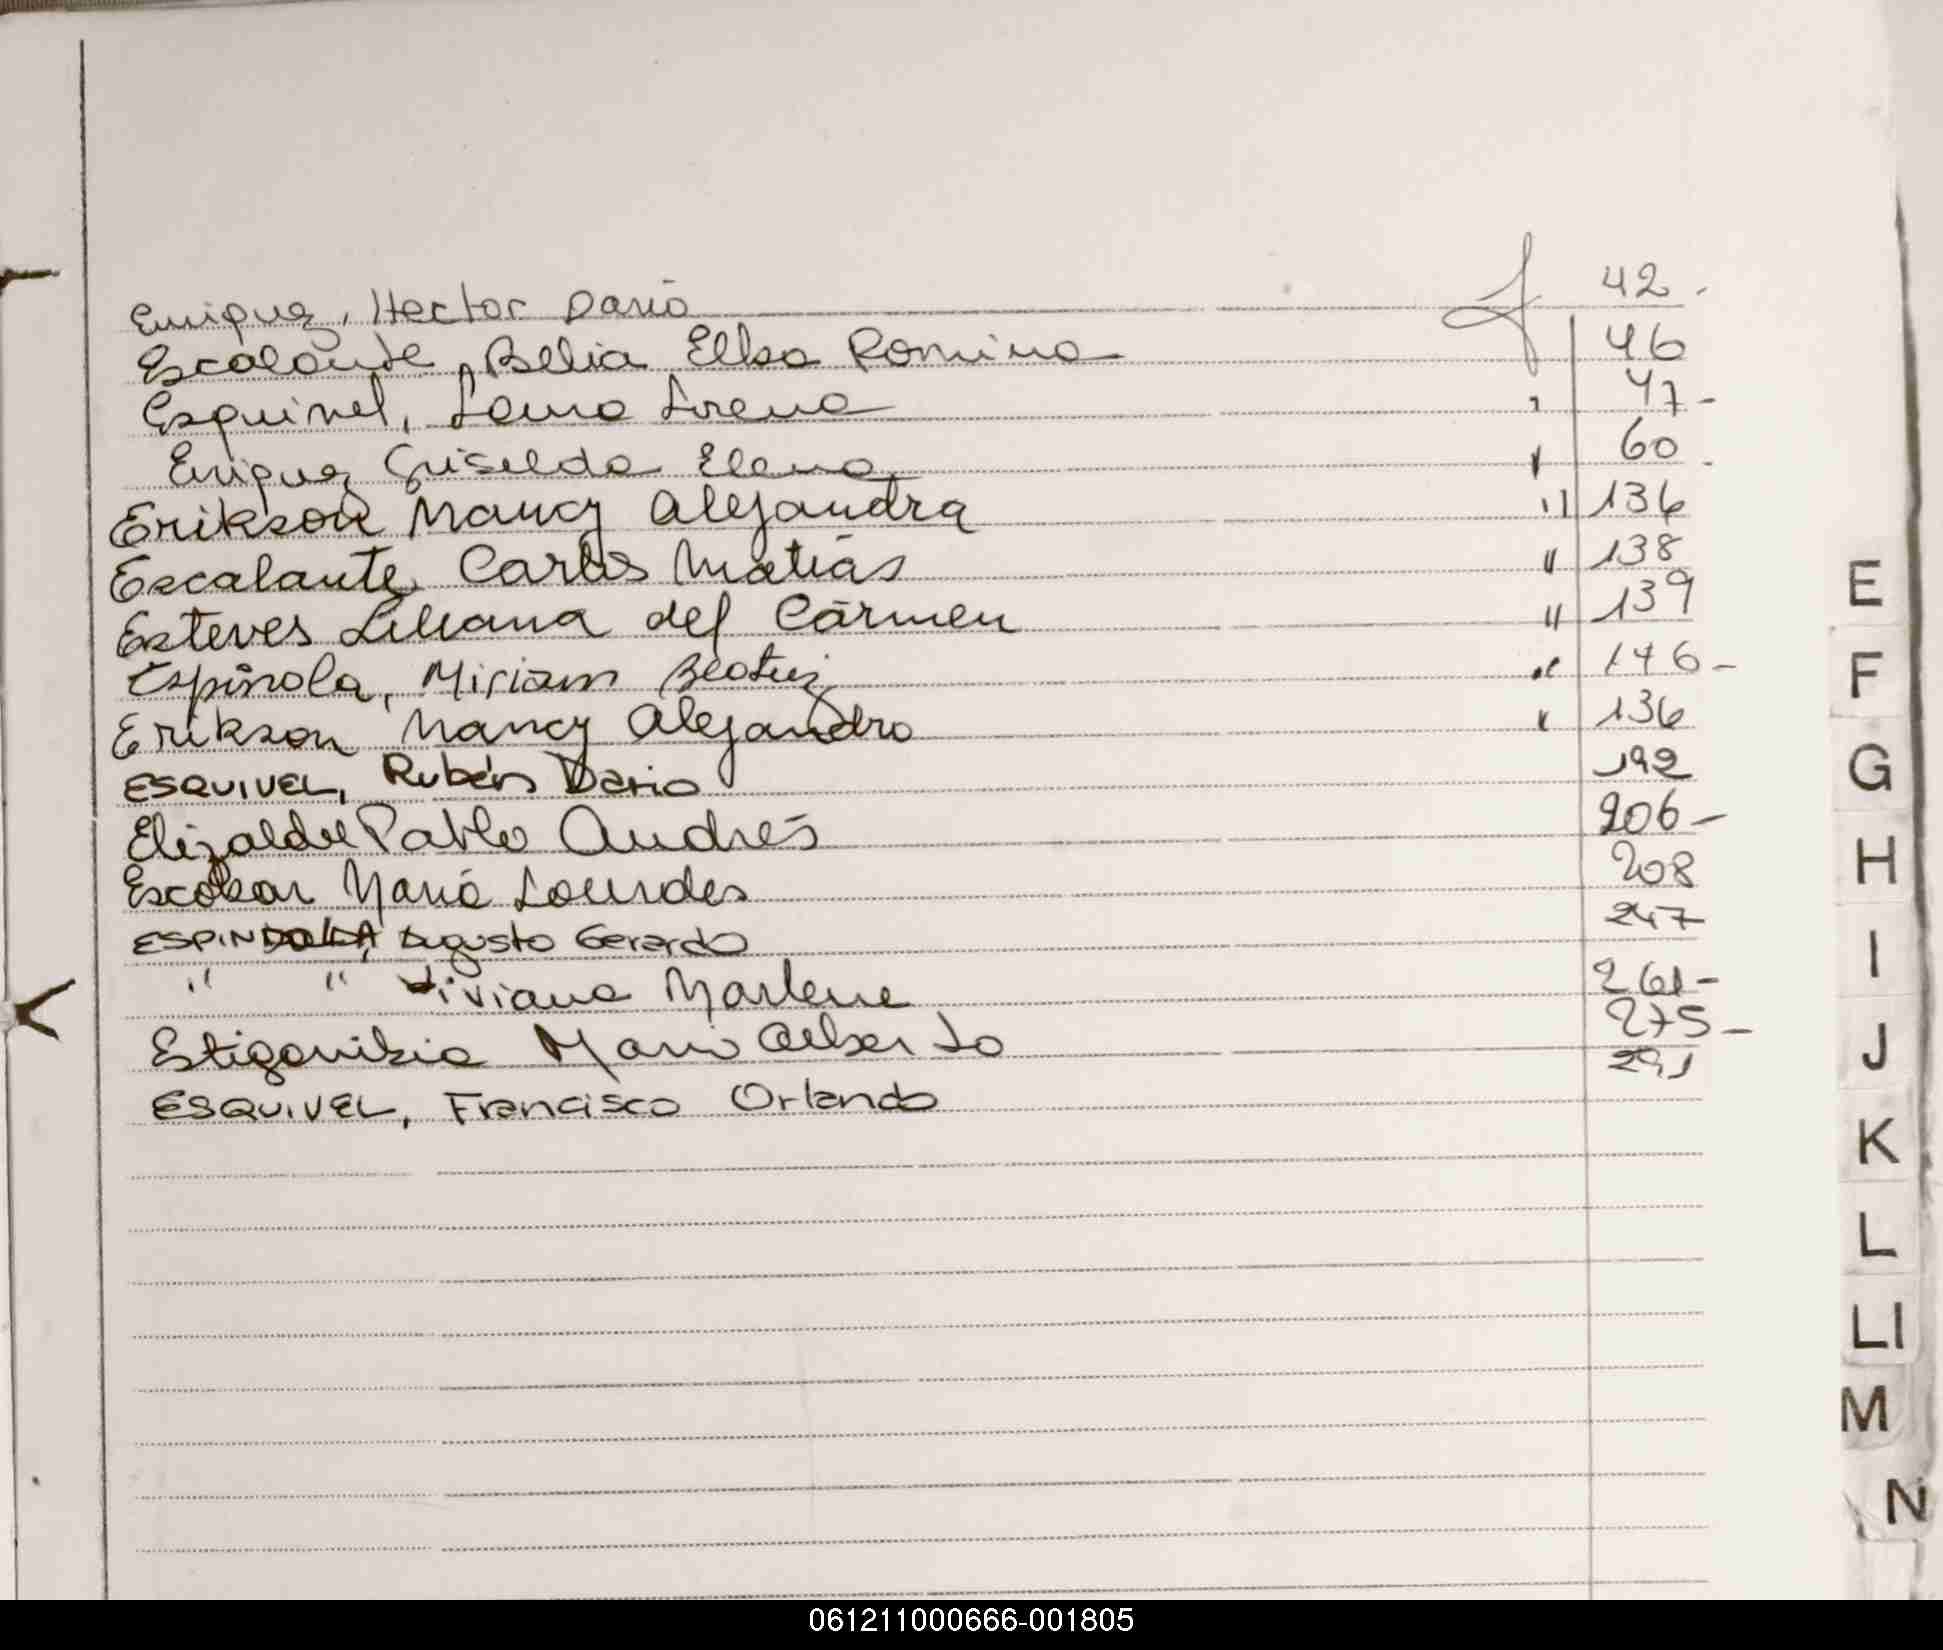 Enriquez, Hector Dario f 42.
Escalante, Belia Elba Romina 46
Esquivel, Laura Lorena " 47-
Enriquez Griselda Elena " 60.
Erikson Nancy Alejandra " 136
Escalante Carlos Matias " 138
Esteves Liliana del Cármen " 139
Espínola, Miriam Beatriz " 146-
Erikson Nancy Alejandra " 136
ESQUIVEL, Rubén Dario 192
Elizalde Pablo Andrés 206-
Escobar María Lourdes 208
ESPINDOLA, Augusto Gerardo 247
" " Viviana Marlene 261-
Estigarribia Mario Alberto 275-
ESQUIVEL, Francisco Orlando 291
E
F
G
H
I
J
K
L
Ll
M
N
061211000666-001805